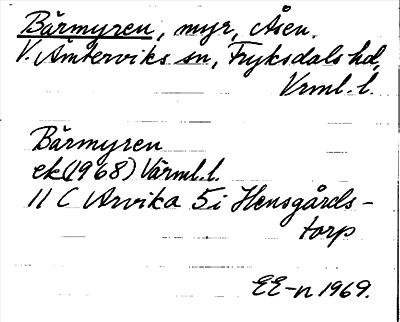 Bärmyren, myr, Åsen.
V. Ämterviks sn, Fryksdals hd,
Vrml. l.
Bärmyren
ek (1968) Värml. l.
11 C Arvika 5i Hensgårds-
torp
EE-n 1969.